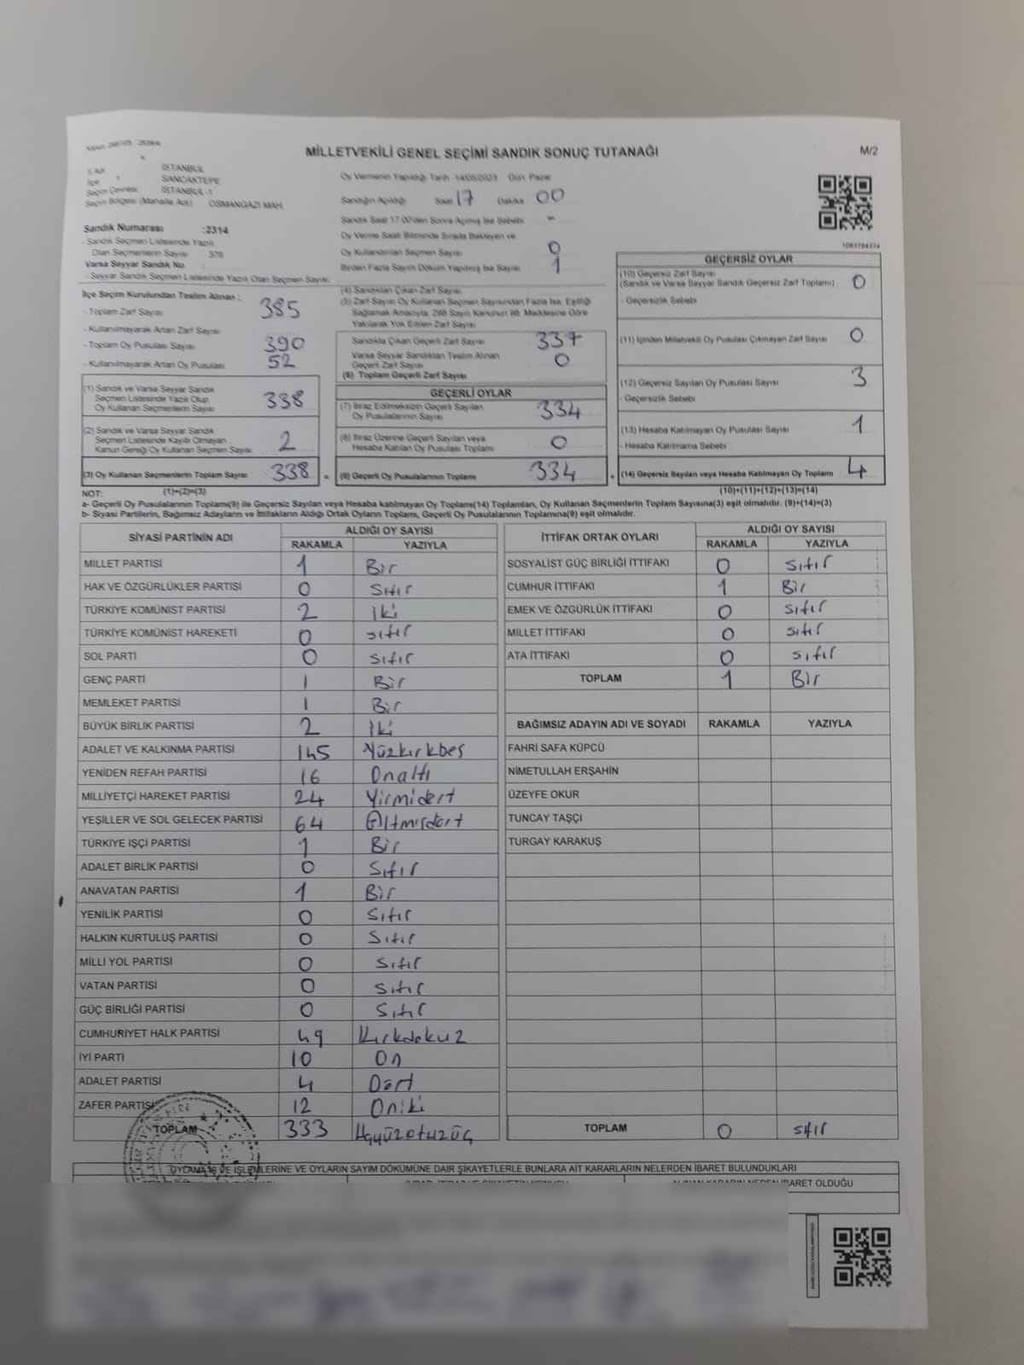 MİLLETVEKİLİ GENEL SEÇİMİ SANDIK SONUÇ TUTANAĞI
M/2
İSTANBUL
SANCAKTEPE
İSTANBUL -1
Seçim Bölgesi (Mahalle Adı) OSMANGAZİ MAH.
Sandık Numarası :2314
Sandık Seçmen Listesinde Yazılı
Olan Seçmenlerin Sayısı 376
Varsa Seyyar Sandık No
Seyyar Sandık Seçmen Listesinde Yazılı Olan Seçmen Sayısı:
Oy Vermenin Yapıldığı Tarih :14/05/2023 Gün: Pazar
Sandığın Açıldığı Saat 17 Dakika 00
Sandık Saat 17.00'den Sonra Açılmış İse Sebebi -
Oy Verme Saati Bitiminde Sırada Bekleyen ve
Oy Kullandırılan Seçmen Sayısı 0
Birden Fazla Sayım Döküm Yapılmış İse Sayısı 1
İlçe Seçim Kurulundan Teslim Alınan :
- Toplam Zarf Sayısı 385
- Kullanılmayarak Artan Zarf Sayısı
- Toplam Oy Pusulası Sayısı 390
- Kullanılmayarak Artan Oy Pusulası 52
(1) Sandık ve Varsa Seyyar Sandık
Seçmen Listesinde Yazılı Olup
Oy Kullanan Seçmenlerin Sayısı 338
(2) Sandık ve Varsa Seyyar Sandık
Seçmen Listesinde Kayıtlı Olmayan
Kanun Gereği Oy Kullanan Seçmen Sayısı 2
(3) Oy Kullanan Seçmenlerin Toplam Sayısı 338 =
(4) Sandıktan Çıkan Zarf Sayısı
(5) Zarf Sayısı Oy Kullanan Seçmen Sayısından Fazla İse, Eşitliği
Sağlamak Amacıyla, 298 Sayılı Kanunun 98. Maddesine Göre
Yakılarak Yok Edilen Zarf Sayısı
Sandıkta Çıkan Geçerli Zarf Sayısı 337
Varsa Seyyar Sandıktan Teslim Alınan
Geçerli Zarf Sayısı 0
(6) Toplam Geçerli Zarf Sayısı
GEÇERLİ OYLAR
(7) İtiraz Edilmeksizin Geçerli Sayılan
Oy Pusulalarının Sayısı 334
(8) İtiraz Üzerine Geçerli Sayılan veya
Hesaba Katılan Oy Pusulaları Toplamı 0
(9) Geçerli Oy Pusulalarının Toplamı 334 +
GEÇERSİZ OYLAR
(10) Geçersiz Zarf Sayısı
(Sandık ve Varsa Seyyar Sandık Geçersiz Zarf Toplamı) 0
- Geçersizlik Sebebi
(11) İçinden Milletvekili Oy Pusulası Çıkmayan Zarf Sayısı 0
(12) Geçersiz Sayılan Oy Pusulası Sayısı 3
- Geçersizlik Sebebi
(13) Hesaba Katılmayan Oy Pusulası Sayısı 1
- Hesaba Katılmama Sebebi
(14) Geçersiz Sayılan veya Hesaba Katılmayan Oy Toplamı 4
NOT: (1)+(2)=(3) (10)+(11)+(12)+(13)=(14)
a- Geçerli Oy Pusulalarının Toplamı(9) ile Geçersiz Sayılan veya Hesaba katılmayan Oy Toplamı(14) Toplamları, Oy Kullanan Seçmenlerin Toplam Sayısına(3) eşit olmalıdır. (9)+(14)=(3)
b- Siyasi Partilerin, Bağımsız Adayların ve İttifakların Aldığı Ortak Oyların Toplamı, Geçerli Oy Pusulalarının Toplamına(9) eşit olmalıdır.
SİYASİ PARTİNİN ADI ALDIĞI OY SAYISI
RAKAMLA YAZIYLA
MİLLET PARTİSİ 1 Bir
HAK VE ÖZGÜRLÜKLER PARTİSİ 0 Sıfır
TÜRKİYE KOMÜNİST PARTİSİ 2 İki
TÜRKİYE KOMÜNİST HAREKETİ 0 sıfır
SOL PARTİ 0 sıfır
GENÇ PARTİ 1 Bir
MEMLEKET PARTİSİ 1 Bir
BÜYÜK BİRLİK PARTİSİ 2 İki
ADALET VE KALKINMA PARTİSİ 145 Yüzkırkbeş
YENİDEN REFAH PARTİSİ 16 Onaltı
MİLLİYETÇİ HAREKET PARTİSİ 24 Yirmidört
YEŞİLLER VE SOL GELECEK PARTİSİ 64 Altmışdört
TÜRKİYE İŞÇİ PARTİSİ 1 Bir
ADALET BİRLİK PARTİSİ 0 Sıfır
ANAVATAN PARTİSİ 1 Bir
YENİLİK PARTİSİ 0 Sıfır
HALKIN KURTULUŞ PARTİSİ 0 Sıfır
MİLLİ YOL PARTİSİ 0 Sıfır
VATAN PARTİSİ 0 Sıfır
GÜÇ BİRLİĞİ PARTİSİ 0 Sıfır
CUMHURİYET HALK PARTİSİ 49 Kırkdokuz
İYİ PARTİ 10 On
ADALET PARTİSİ 4 Dört
ZAFER PARTİSİ 12 Oniki
TOPLAM 333 Üçyüzotuzüç
İTTİFAK ORTAK OYLARI ALDIĞI OY SAYISI
RAKAMLA YAZIYLA
SOSYALİST GÜÇ BİRLİĞİ İTTİFAKI 0 sıfır
CUMHUR İTTİFAKI 1 Bir
EMEK VE ÖZGÜRLÜK İTTİFAKI 0 sıfır
MİLLET İTTİFAKI 0 sıfır
ATA İTTİFAKI 0 sıfır
TOPLAM 1 Bir
BAĞIMSIZ ADAYIN ADI VE SOYADI RAKAMLA YAZIYLA
FAHRİ SAFA KÜPCÜ
NİMETULLAH ERŞAHİN
ÜZEYFE OKUR
TUNCAY TAŞÇI
TURGAY KARAKUŞ
TOPLAM 0 sıfır
OYLAMA VE İŞLEMLERİNE VE OYLARIN SAYIM DÖKÜMÜNE DAİR ŞİKAYETLERLE BUNLARA AİT KARARLARIN NELERDEN İBARET BULUNDUKLARI